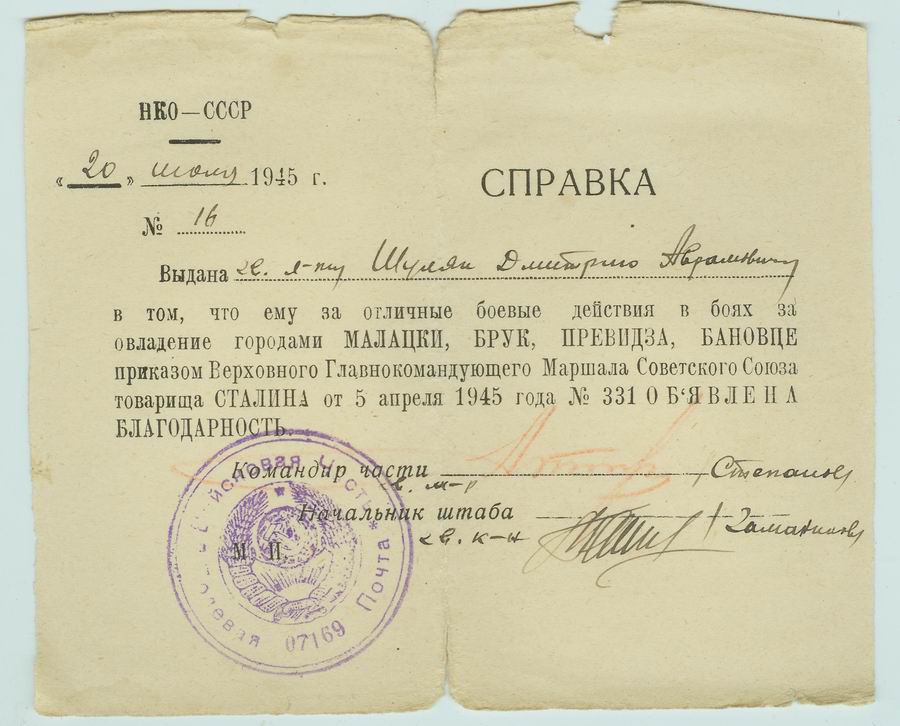 НКО—СССР
«20» июля 1945 г.
СПРАВКА
№ 16
Выдана гв. л-ту Шуляк Дмитрию Аврамовичу
в том, что ему за отличные боевые действия в боях за
овладение городами МАЛАЦКИ, БРУК, ПРЕВИДЗА, БАНОВЦЕ
приказом Верховного Главнокомандующего Маршала Советского Союза
товарища СТАЛИНА от 5 апреля 1945 года № 331 ОБ‘ЯВЛЕНА
БЛАГОДАРНОСТЬ.
Командир части Степанов
гв. м-р
Начальник штаба
гв. к-н
М. П.
Войсковая Часть * Полевая Почта
07169